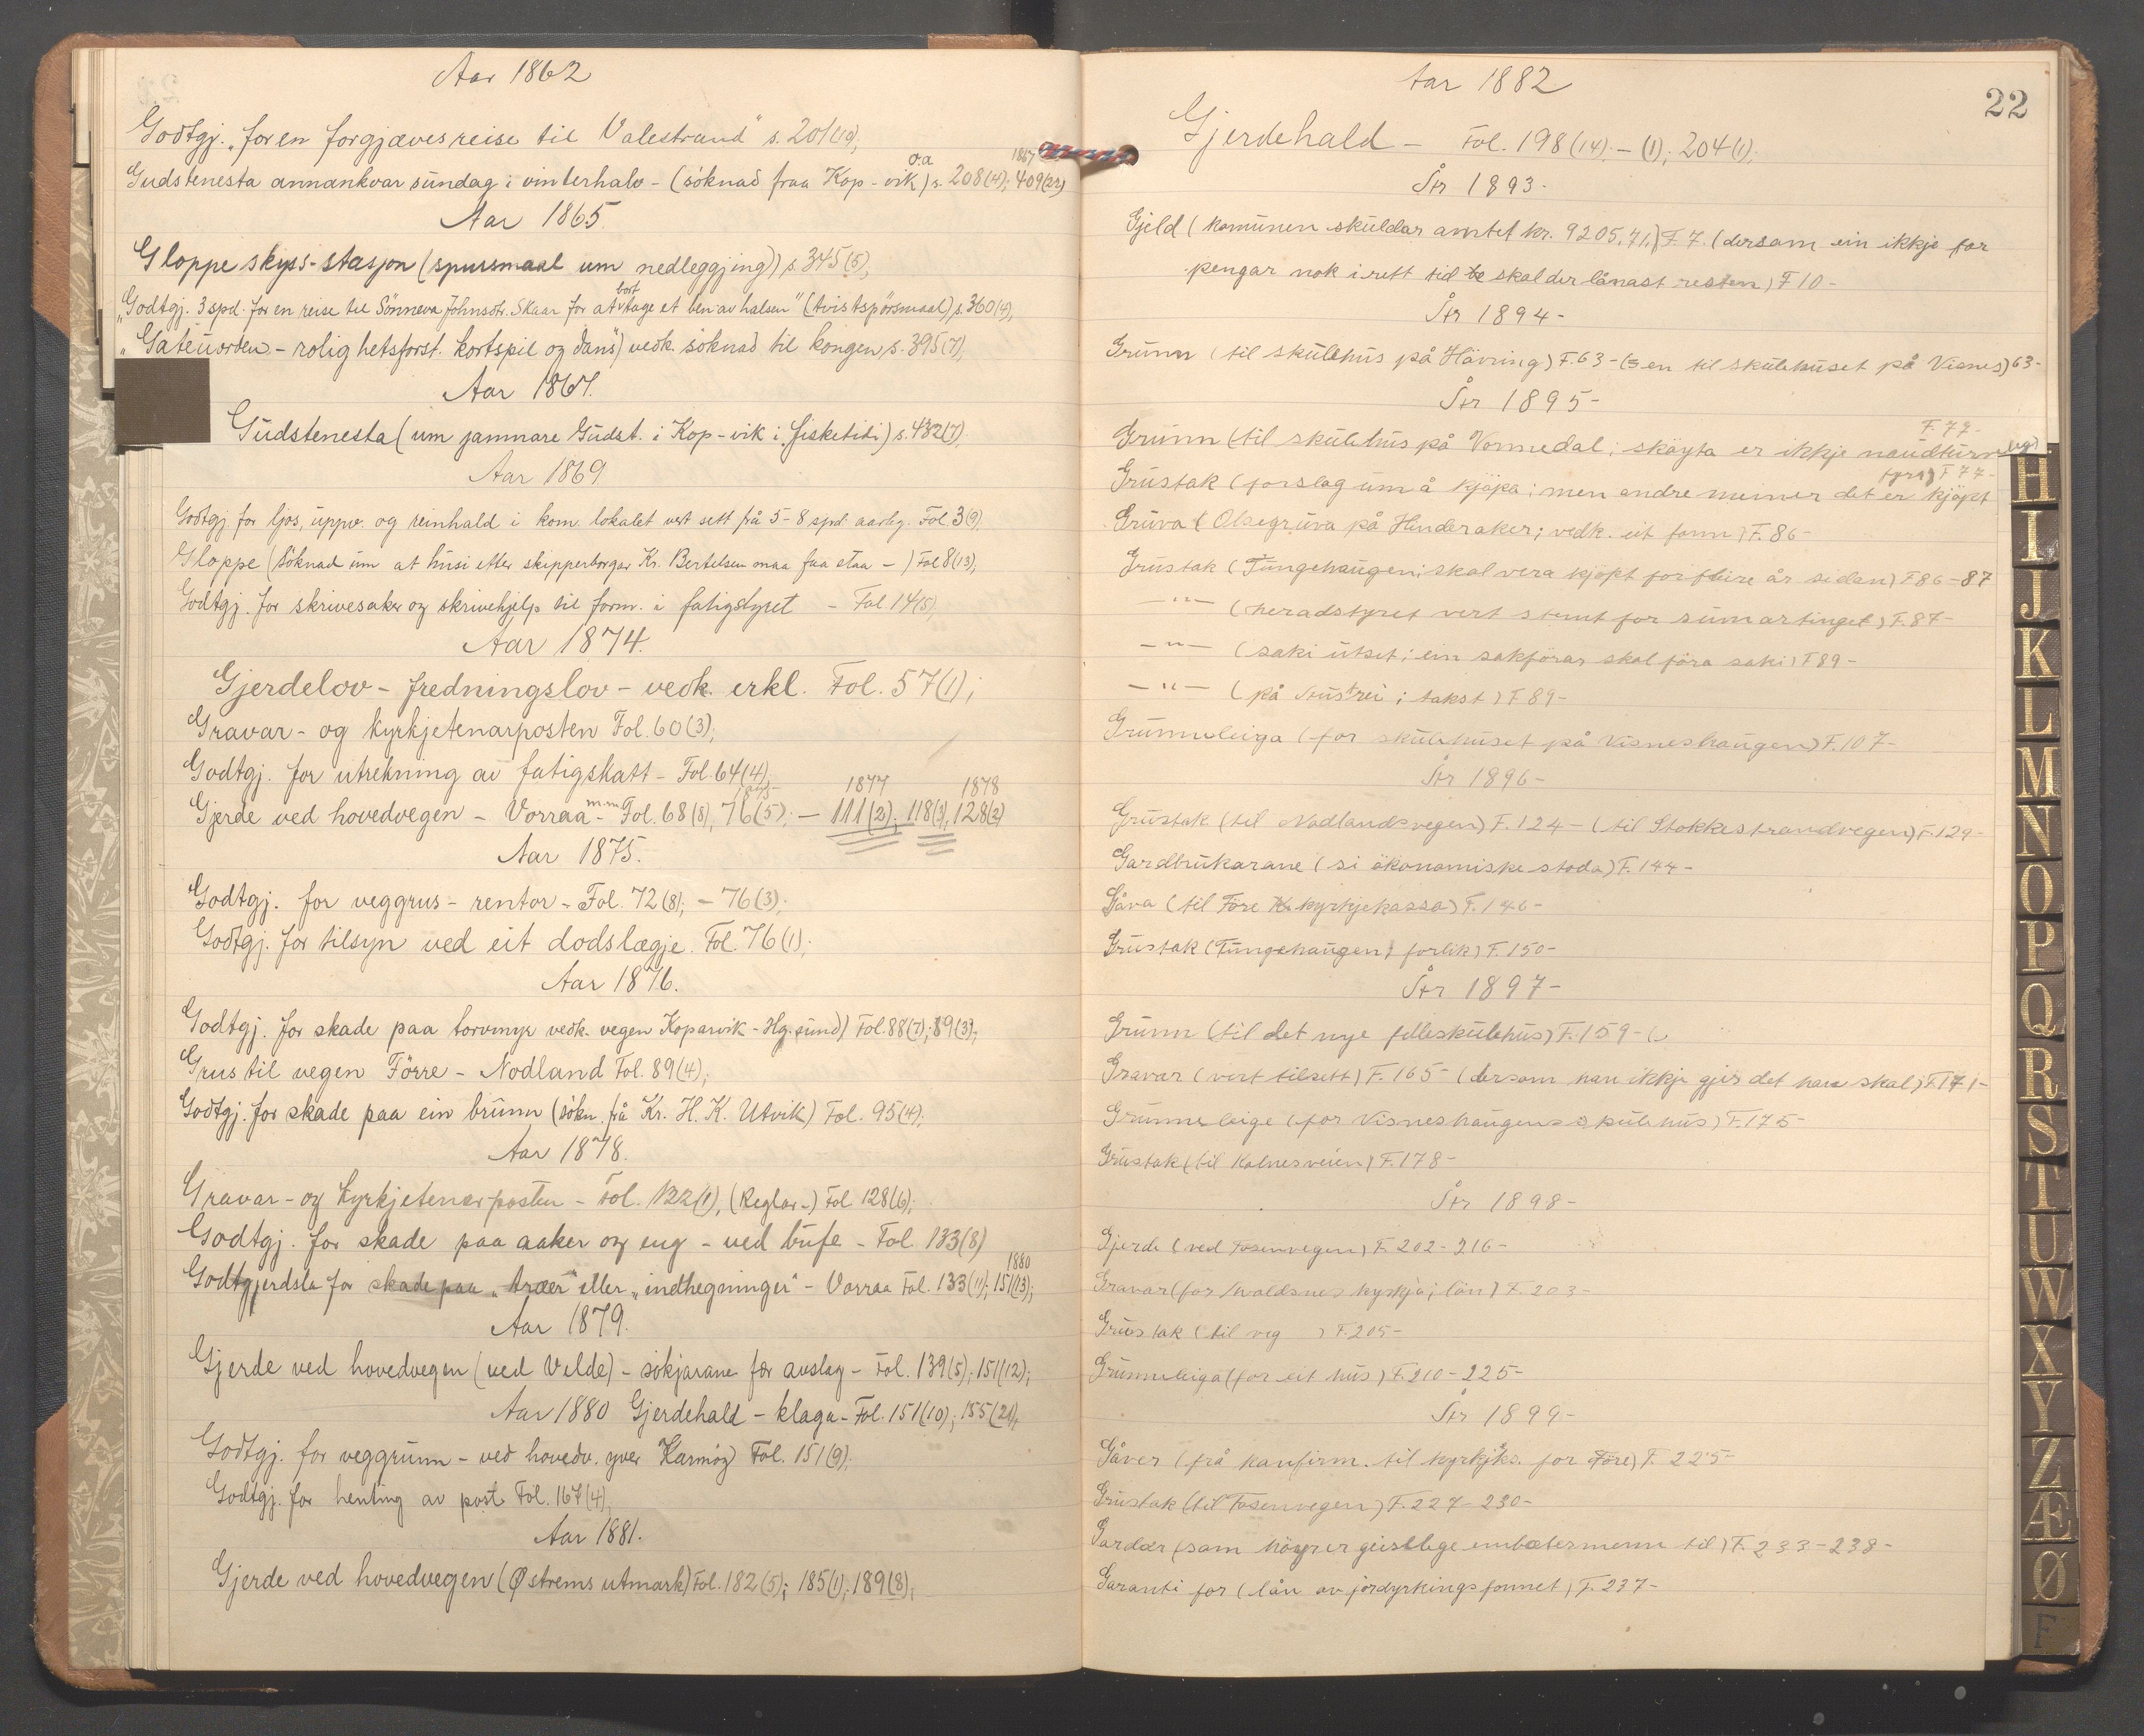 Aar 1862
Godtgj. „for en forgjæves reise til Valestrand" s. 201(10);
o.a 1867
Gudstenesta annankvar sundag i vinterhalv - (söknad fraa Kop-vik) s. 208(4); 409(22)
Aar 1865.
Gloppe skyss-stasjon (spursmaal um nedleggjing) s. 345(5);
bort
„Godtgj. 3 spd. for en reise til Sönneva Johnsdtr. Skaar for at tage et ben av halsen" (tvistspörsmaal) s. 360(4);
„Gateuorden - rolighetsforst. kortspil og dans") vedk. söknad til kongen s. 395(7);
Aar 1867.
Gudstenesta (um jamnare Gudst. i Kop-vik i fisketidi) s. 432(7);
Aar 1869
Godtgj. for ljos, uppv. og reinhald i kom. lokalet vert sett frå 5-8 spd. aarleg. Fol. 3(9);
Gloppe (söknad um at husi etter skipperborgar Kr. Bertelsen maa faa staa -) Fol 8(13);
Godtgj. for skrivesaker og skrivehjelp til form. i fatigstyret - Fol 14(5)
Aar 1874.
Gjerdelov - fredningslov - vedk. erkl. Fol. 57(1);
Gravar- og kyrkjetenarposten Fol. 60(3);
Godtgj. for utrekning av fatigskatt - Fol. 64(4);
1875 1877 1878
Gjerde ved hovedvegen - Vorraa m.m. - Fol. 68(8), 76(5); - 111(2); 118(3), 128(2)
Aar 1875.
Godtgj. for veggrus - rentor - Fol. 72(8); - 76(3);
Godtgj. for tilsyn ved eit dodslægje. Fol. 76(1);
Aar 1876.
Godtgj. for skade paa torvmyr vedk. vegen Koparvik - Hg.sund) Fol. 88(7); 89(3);
Grus til vegen Förre - Nodland Fol. 89(4);
Godtgj. for skade paa ein brunn (sökn. frå Kr. H. K. Utvik) Fol. 95(4);
Aar 1878.
Gravar- og kyrkjetenarposten - Fol. 122(1), (Reglar-) Fol 128(6);
Godtgj. for skade paa aaker og eng - ved bufe - Fol. 133(8)
1880
Godtgjerdsla for skade paa „træer" eller „indhegninger" - Vorraa Fol. 133(11); 151(13);
Aar 1879.
Gjerde ved hovedvegen (ved Velde) - sökjarane fær avslag - Fol. 139(5); 151(12);
Aar 1880 Gjerdehald - klaga - Fol. 151(10); 155(21);
Godtgj. for veggrunn - ved hovedv. yver Karmöy) Fol. 151(9);
Godtgj. for henting av post Fol. 167(4);
Aar 1881.
Gjerde ved hovedvegen (Østrems utmark) Fol. 182(5); 185(1); 189(8);
Aar 1882
22
Gjerdehald - Fol. 198(14); - (1); 204(1);
År 1893-
Gjeld (komunen skuldar amtet kr. 9205,71.) F. 7. (dersom ein ikkje får
pengar nok i rett tid skal der lånast resten) F 10-
År 1894-
Grunn (til skulehus på Hävring) F. 63 - (en til skulehuset på Visnes) 63-
År 1895-
F. 77-
Grunn (til skulehus på Vormedal; skøyta er ikkje naudturveleg)
F 77-
Grustak (forslag um å kjöpa; men andre meiner det er kjöpt
Gruva (Olsegruva på Hinderaker; vedk. eit fonn) F. 86-
Grustak (Tungehaugen; skal vera kjöpt for fleire år sidan) F 86-87
-"- (heradstyret vert stemt for sumartinget) F. 87-
-"- (saki utset; ein sakförar skal föra saki) F 89-
-"- (på ; takst) F 89-
Grunnleiga (for skulehuset på Visneshaugen) F. 107-
År 1896-
Grustak (til Nodlandsvegen) F. 124- (til Stokkastrandvegen) F. 129-
Gardbrukarane (si ökonomiske stoda) F. 144-
Gåva (til Före kyrkjekassa) F. 146-
Grustak (Tungehaugen) forlik) F. 150-
År 1897-
Grunn (til det nye felleskulehus) F. 159-
Gravar (vert tilsett) F. 165- (dersom han ikkje gjer det han skal) F. 171-
Grunnleige (for Visneshaugen skulehus) F. 175-
Grustak (til Kolnesveien) F. 178-
År 1898-
Gjerde (ved Fosenvegen) F. 202-216-
Gravar (for Avaldsnes kyrkja; lön) F. 203-
Grustak (til veg ) F. 205-
Grunnleiga (for eit hus) F. 210-225-
År 1899-
Gåver (frå konfirm. til kyrkjks. for Före) F. 225-
Grustak (til Fosenvegen) F. 227-230-
Gardar (som höyrer geistlege embætsmenn til) F. 233-238-
Garanti for (lån av jordyrkingsfonnet) F. 237-
H
I
J
K
L
M
N
O
P
Q
R
S
T
U
W
X
Y
Z
Æ
Ø
F